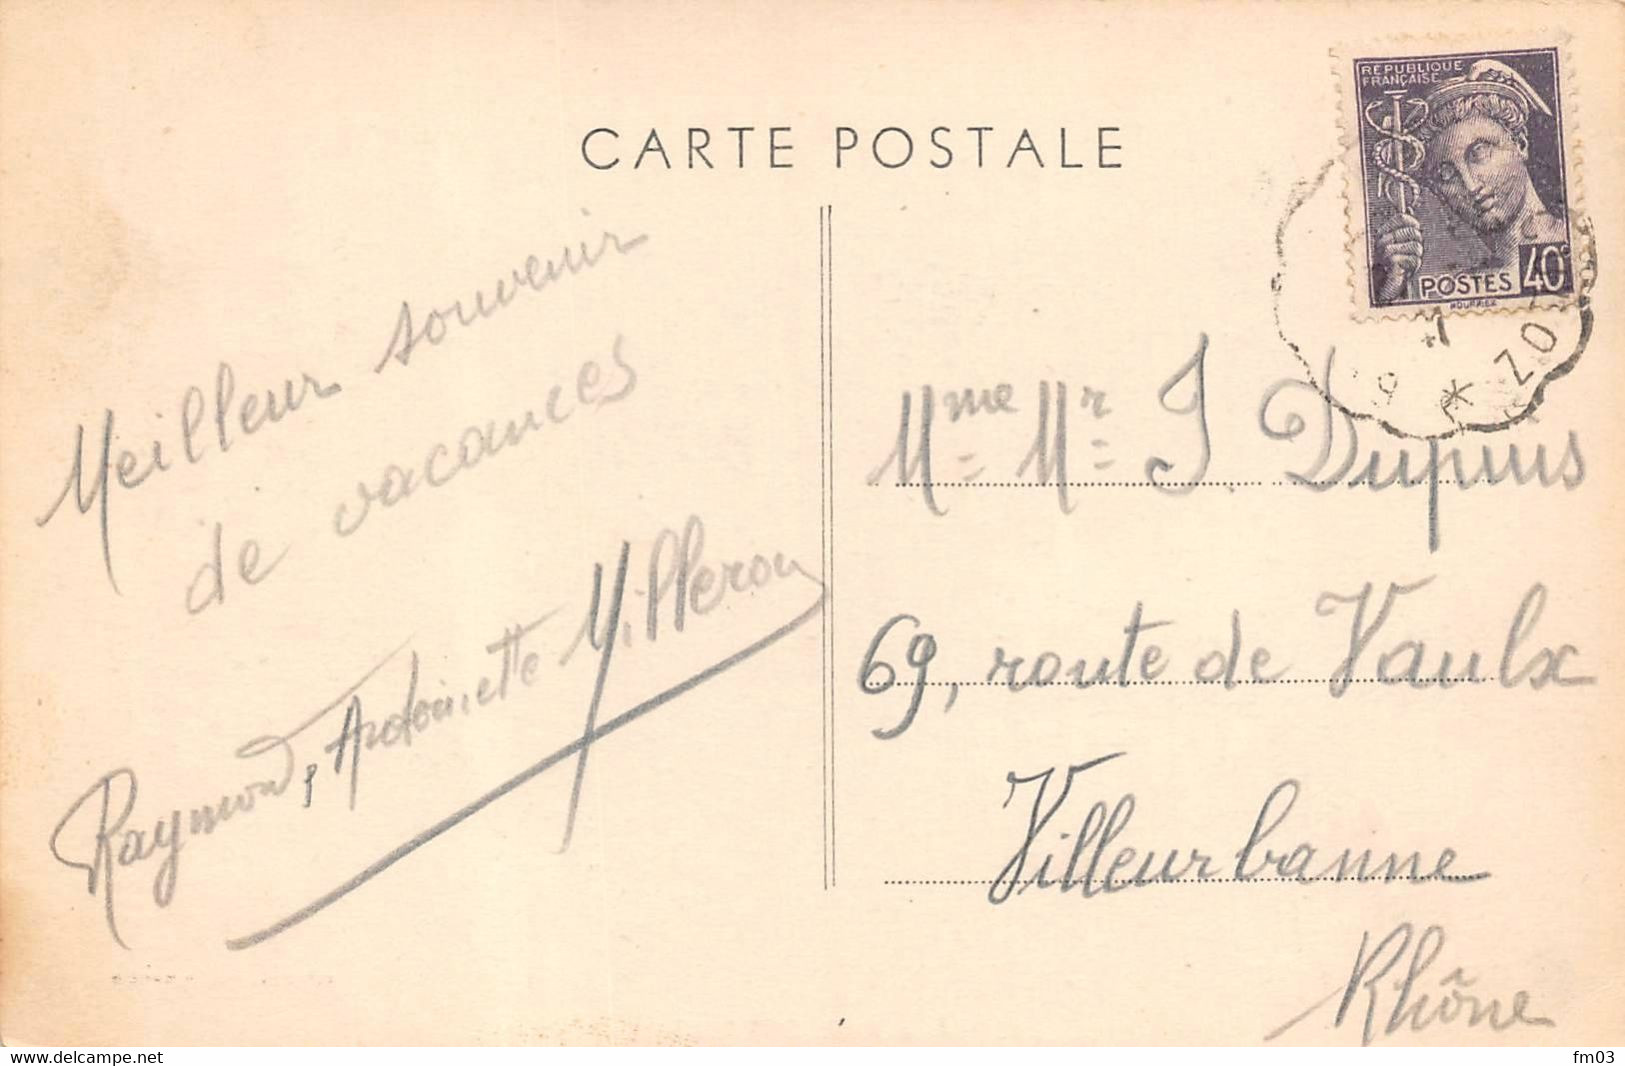 CARTE POSTALE
RÉPUBLIQUE
FRANÇAISE
POSTES 40c
Meilleur souvenir
de vacances
Raymond, Antoinette Milleron
Mme Mr J. Dupuis
69, route de Vaulx
Villeurbanne
Rhône
delcampe.net
fm03